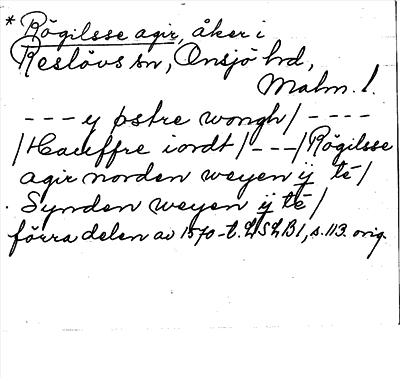 * Rögilsse agir, åker i
Reslövs sn, Onsjö hd,
Malm. l.
---y østre wongh/----
/Hauffre iordt/---/Rögilsse
agir norden weyen ij té/
Synden weyen ij té/
förra delen av 1570-t. LSLB1, s. 113. orig.